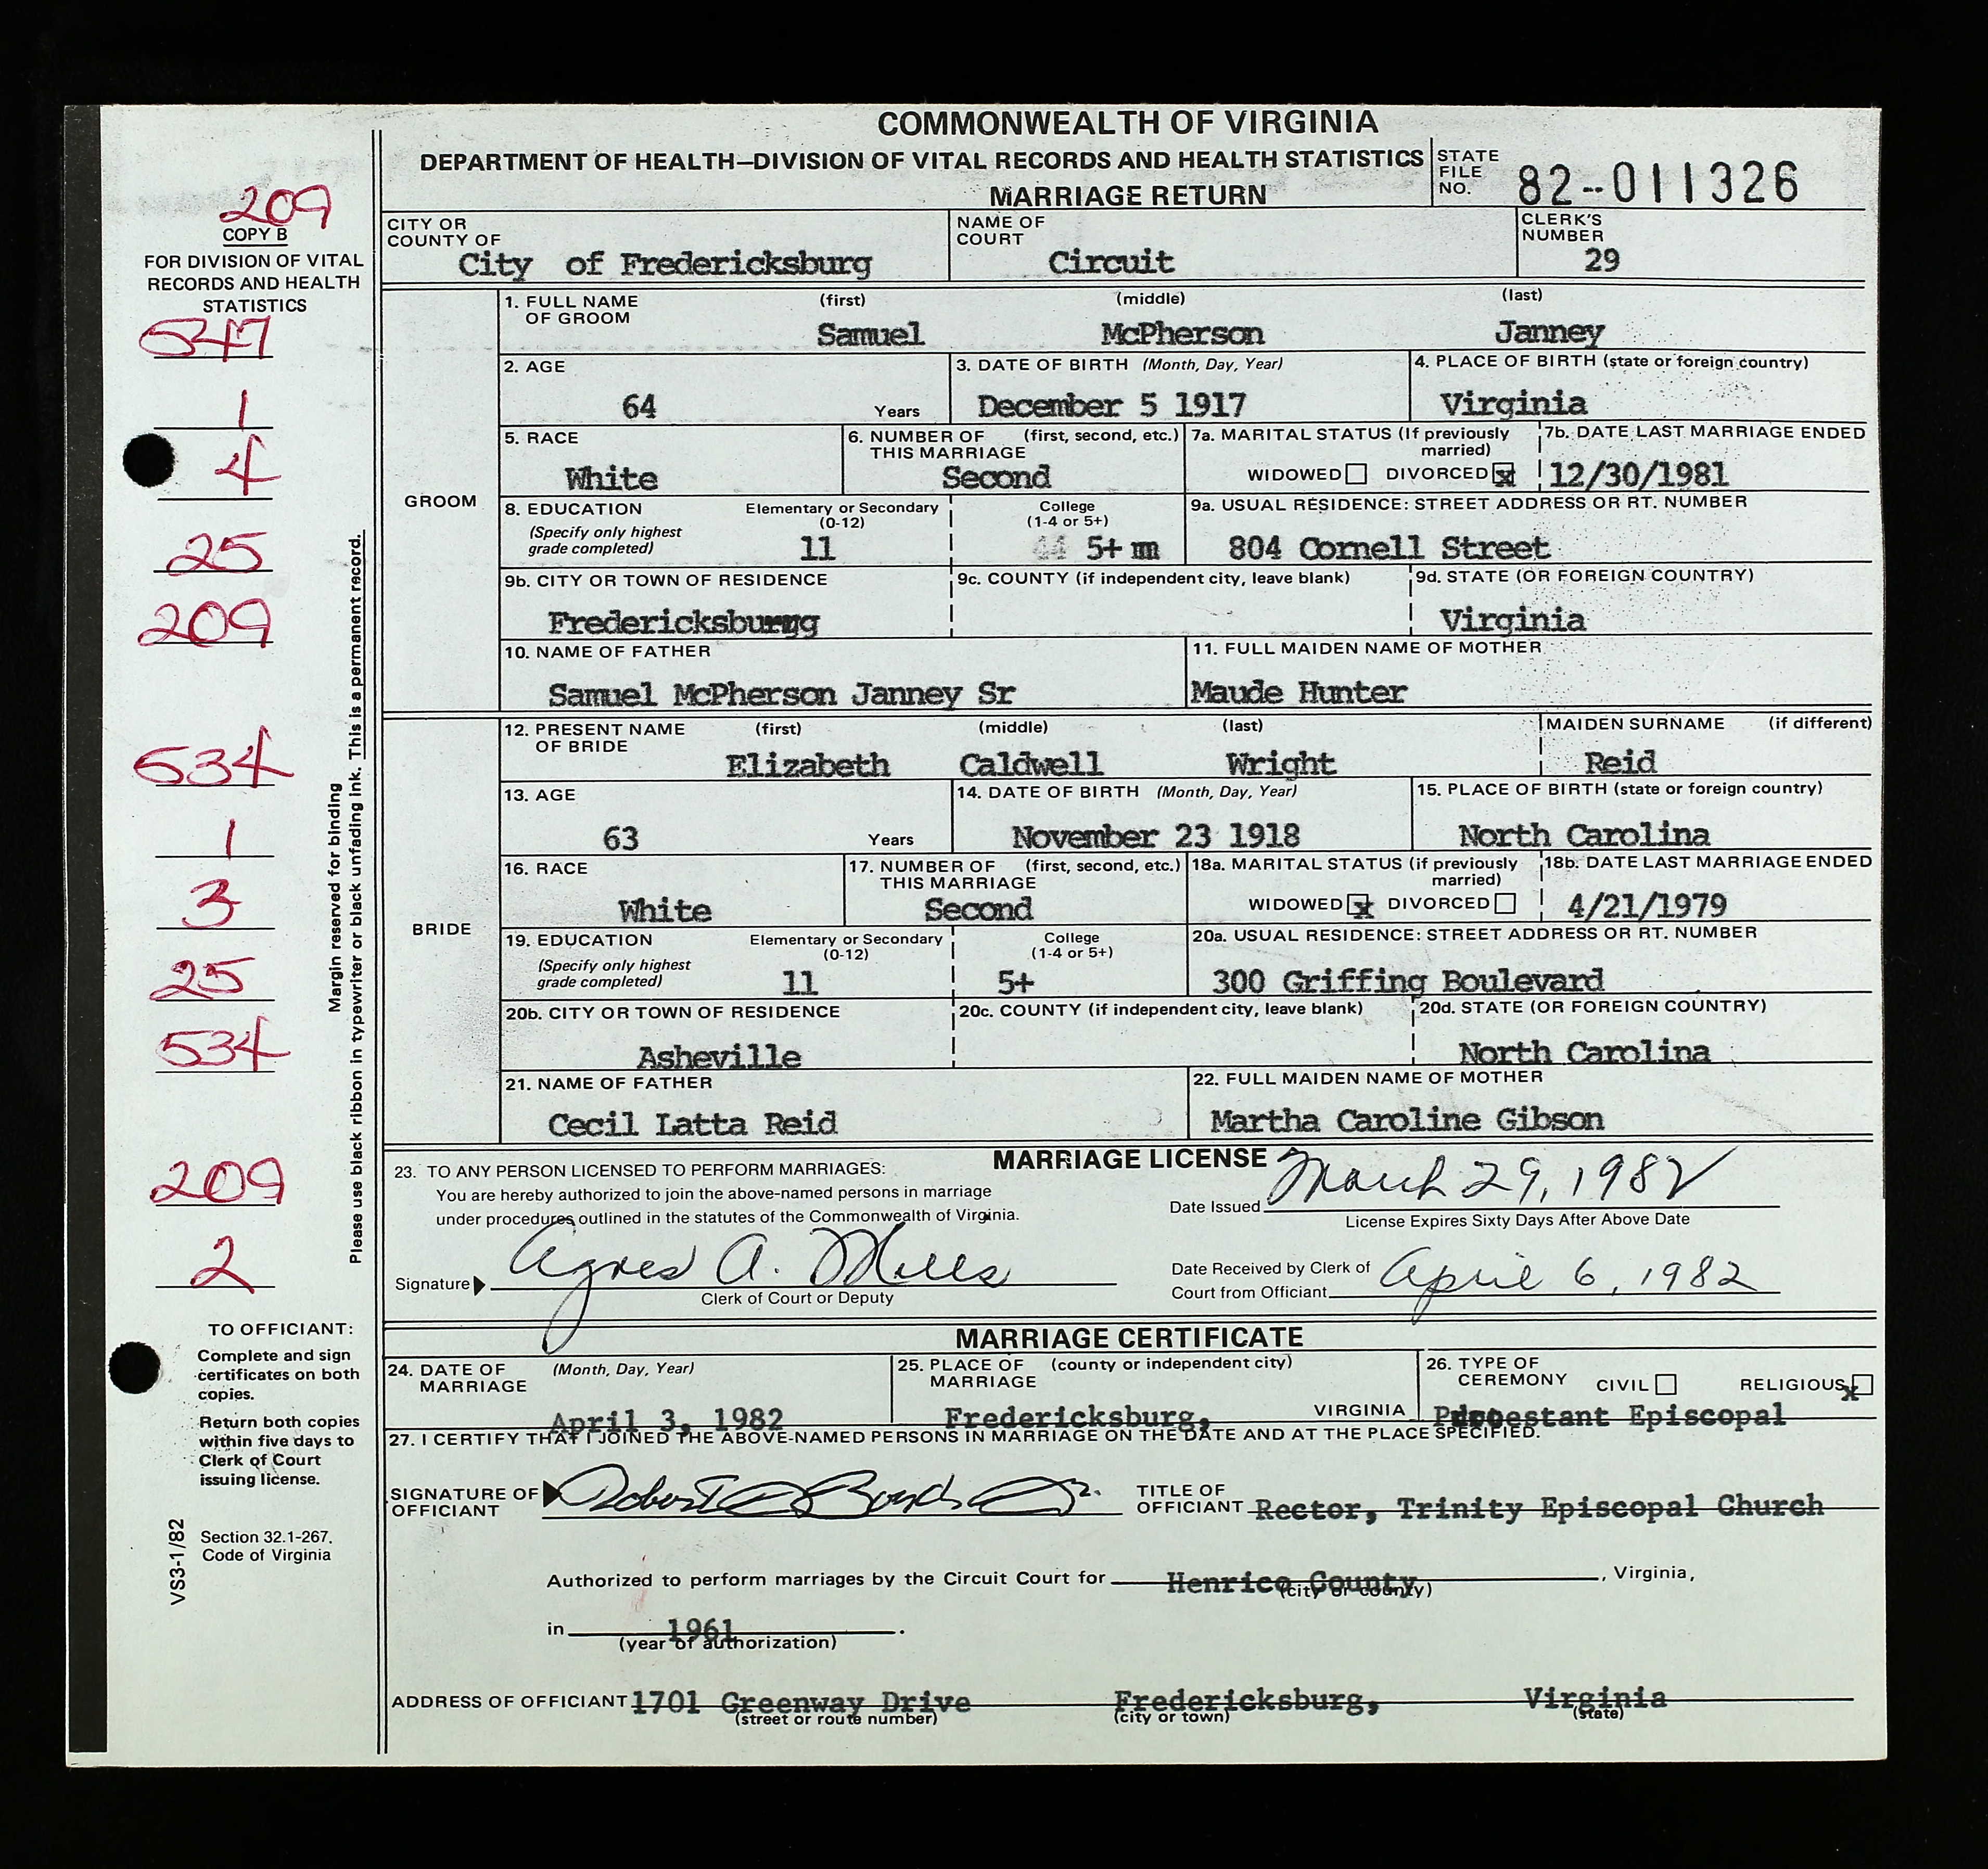 COMMONWEALTH OF VIRGINIA
DEPARTMENT OF HEALTH—DIVISION OF VITAL RECORDS AND HEALTH STATISTICS
MARRIAGE RETURN
STATE FILE NO. 82-011326
209
COPY B
FOR DIVISION OF VITAL
RECORDS AND HEALTH
STATISTICS
547
1
4
25
209
534
1
3
25
534
209
2
Margin reserved for binding
Please use black ribbon in typewriter or black unfading ink. This is a permanent record.
TO OFFICIANT:
Complete and sign
certificates on both
copies.
Return both copies
within five days to
Clerk of Court
issuing license.
Section 32.1-267,
Code of Virginia
VS3-1/82
CITY OR COUNTY OF City of Fredericksburg
NAME OF COURT Circuit
CLERK'S NUMBER 29
GROOM
1. FULL NAME OF GROOM (first) (middle) (last)
Samuel McPherson Janney
2. AGE 64 Years
3. DATE OF BIRTH (Month, Day, Year) December 5 1917
4. PLACE OF BIRTH (state or foreign country) Virginia
5. RACE White
6. NUMBER OF THIS MARRIAGE (first, second, etc.) Second
7a. MARITAL STATUS (If previously married) WIDOWED DIVORCED x
7b. DATE LAST MARRIAGE ENDED 12/30/1981
8. EDUCATION (Specify only highest grade completed) Elementary or Secondary (0-12) 11
College (1-4 or 5+) 5+
9a. USUAL RESIDENCE: STREET ADDRESS OR RT. NUMBER 804 Cornell Street
9b. CITY OR TOWN OF RESIDENCE Fredericksburg
9c. COUNTY (if independent city, leave blank)
9d. STATE (OR FOREIGN COUNTRY) Virginia
10. NAME OF FATHER Samuel McPherson Janney Sr
11. FULL MAIDEN NAME OF MOTHER Maude Hunter
BRIDE
12. PRESENT NAME OF BRIDE (first) (middle) (last) MAIDEN SURNAME (if different)
Elizabeth Caldwell Wright Reid
13. AGE 63 Years
14. DATE OF BIRTH (Month, Day, Year) November 23 1918
15. PLACE OF BIRTH (state or foreign country) North Carolina
16. RACE White
17. NUMBER OF THIS MARRIAGE (first, second, etc.) Second
18a. MARITAL STATUS (if previously married) WIDOWED x DIVORCED
18b. DATE LAST MARRIAGE ENDED 4/21/1979
19. EDUCATION (Specify only highest grade completed) Elementary or Secondary (0-12) 11
College (1-4 or 5+) 5+
20a. USUAL RESIDENCE: STREET ADDRESS OR RT. NUMBER 300 Griffing Boulevard
20b. CITY OR TOWN OF RESIDENCE Asheville
20c. COUNTY (if independent city, leave blank)
20d. STATE (OR FOREIGN COUNTRY) North Carolina
21. NAME OF FATHER Cecil Latta Reid
22. FULL MAIDEN NAME OF MOTHER Martha Caroline Gibson
MARRIAGE LICENSE
23. TO ANY PERSON LICENSED TO PERFORM MARRIAGES:
You are hereby authorized to join the above-named persons in marriage
under procedures outlined in the statutes of the Commonwealth of Virginia.
Date Issued March 29, 1982
License Expires Sixty Days After Above Date
Signature Agnes A. Mills
Clerk of Court or Deputy
Date Received by Clerk of
Court from Officiant April 6, 1982
MARRIAGE CERTIFICATE
24. DATE OF MARRIAGE (Month, Day, Year) April 3, 1982
25. PLACE OF MARRIAGE (county or independent city) Fredericksburg, VIRGINIA
26. TYPE OF CEREMONY CIVIL RELIGIOUS x
Episcopal
27. I CERTIFY THAT I JOINED THE ABOVE-NAMED PERSONS IN MARRIAGE ON THE DATE AND AT THE PLACE SPECIFIED.
SIGNATURE OF OFFICIANT Robert
TITLE OF OFFICIANT Rector, Trinity Episcopal Church
Authorized to perform marriages by the Circuit Court for Henrico County, Virginia,
(city or county)
in 1961.
(year of authorization)
ADDRESS OF OFFICIANT 1701 Greenway Drive Fredericksburg, Virginia
(street or route number) (city or town) (state)